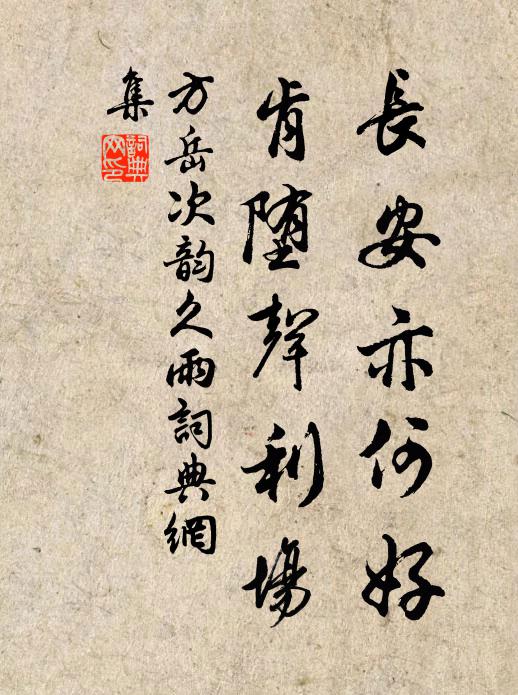 長安亦何好
肯墮聲利場
方岳次韵久雨詞典網
集
詞典
网印